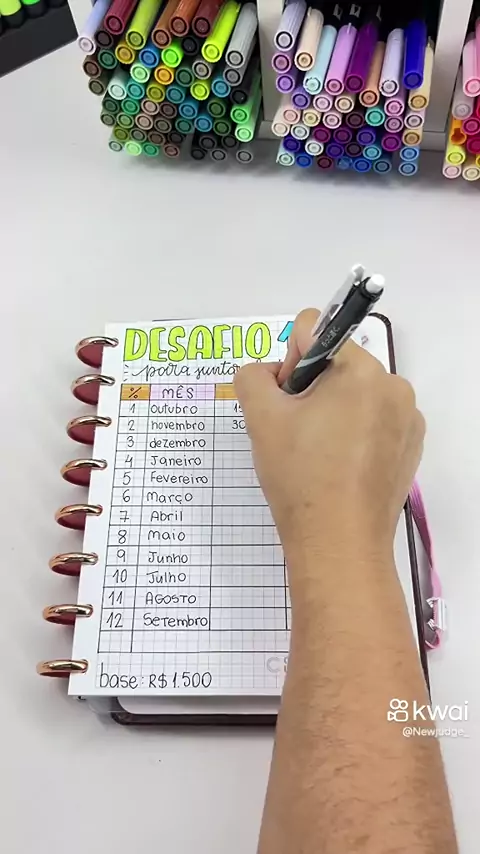 DESAFIO
para juntar
% MÊS
1 outubro 15
2 novembro 30
3 dezembro
4 Janeiro
5 Fevereiro
6 março
7 Abril
8 maio
9 Junho
10 Julho
11 AGOSTO
12 Setembro
base: R$ 1.500
kwai
@Newjudge_